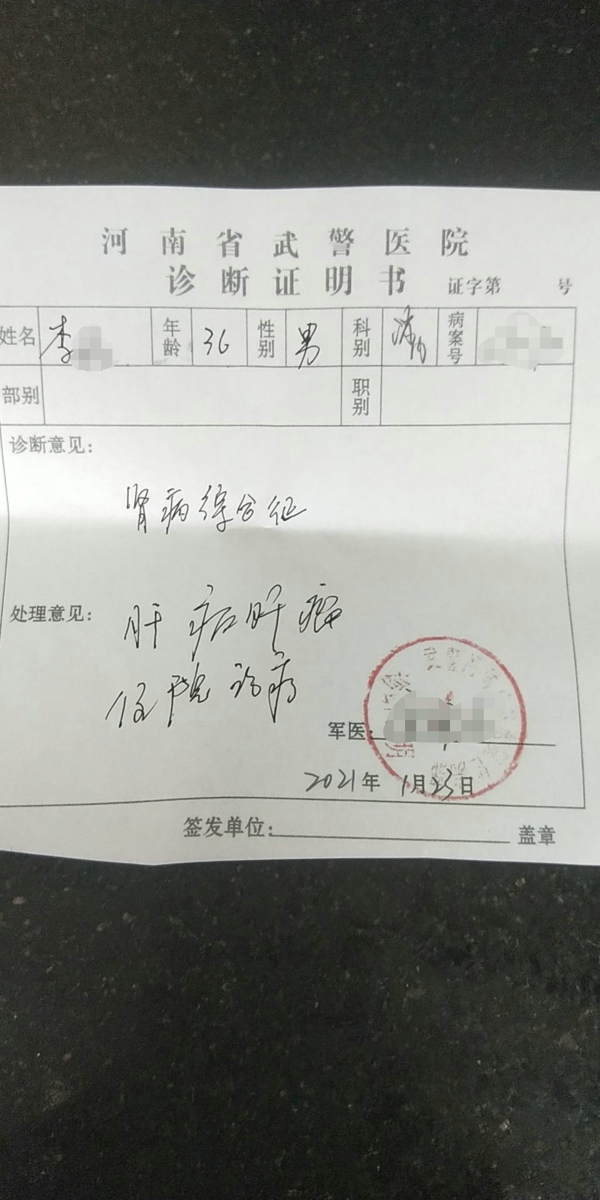 河南省武警医院
诊断证明书 证字第 号
姓名 李 年龄 36 性别 男 科别 病案号
部别 职别
诊断意见：
肾病综合征
处理意见：
住院
军医：
2021年1月23日
签发单位： 盖章